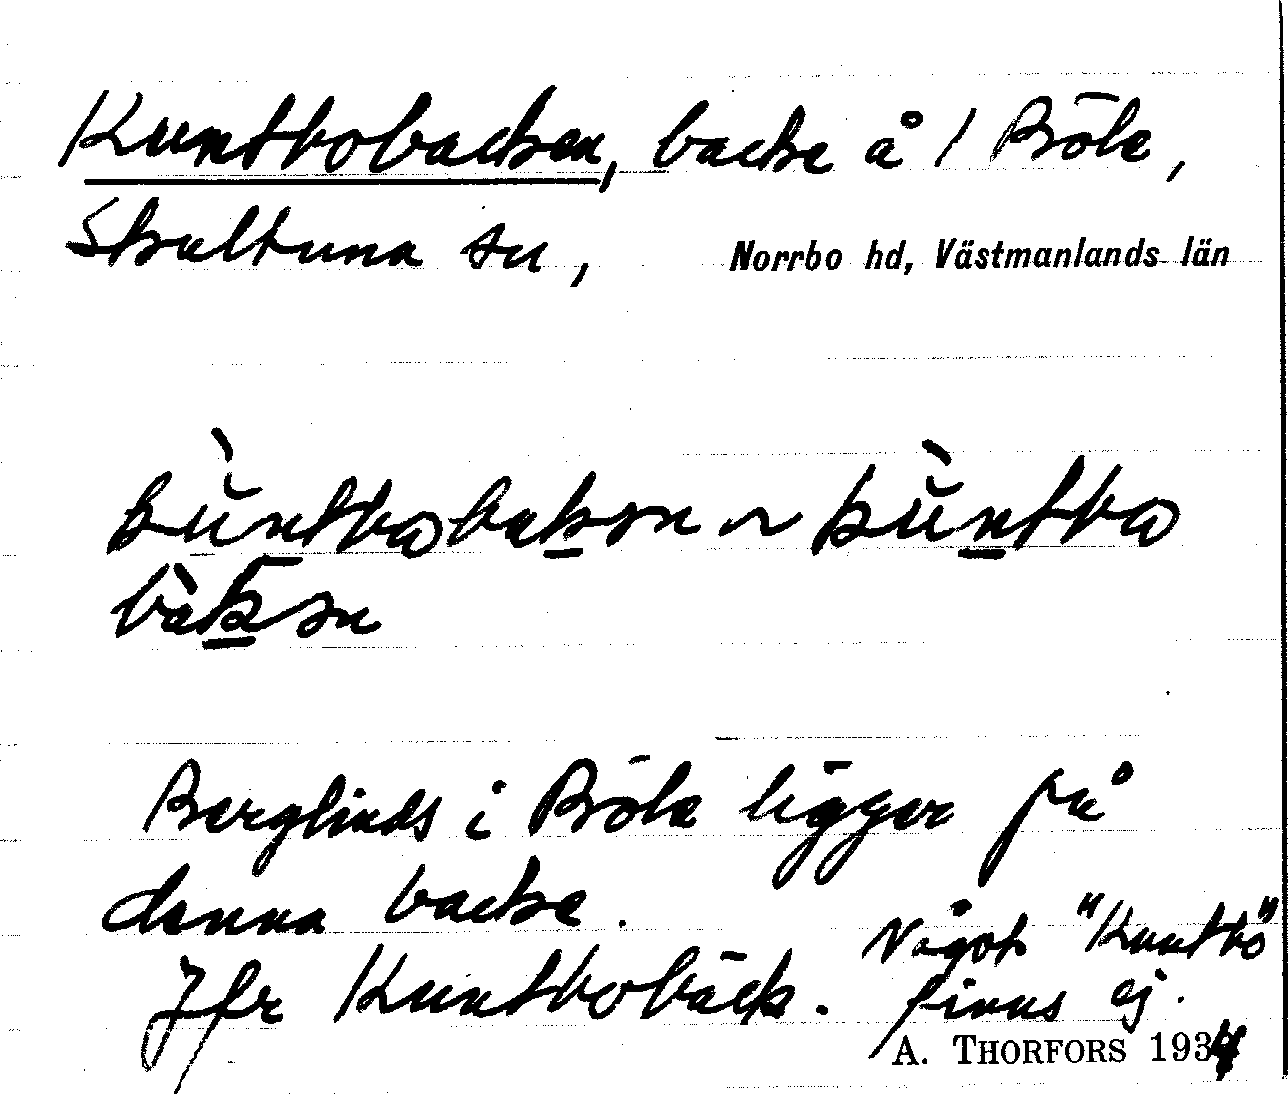 Kuntbobacken, backe å 1 Böle,
Skultuna sn, Norrbo hd, Västmanlands län
kùntbobakən ~ kùntbo
bàkən
Berglinds i Böle ligger på
denna backe.
Något "Kuntbo"
Jfr Kuntbobäck. finns ej.
A. THORFORS 1934